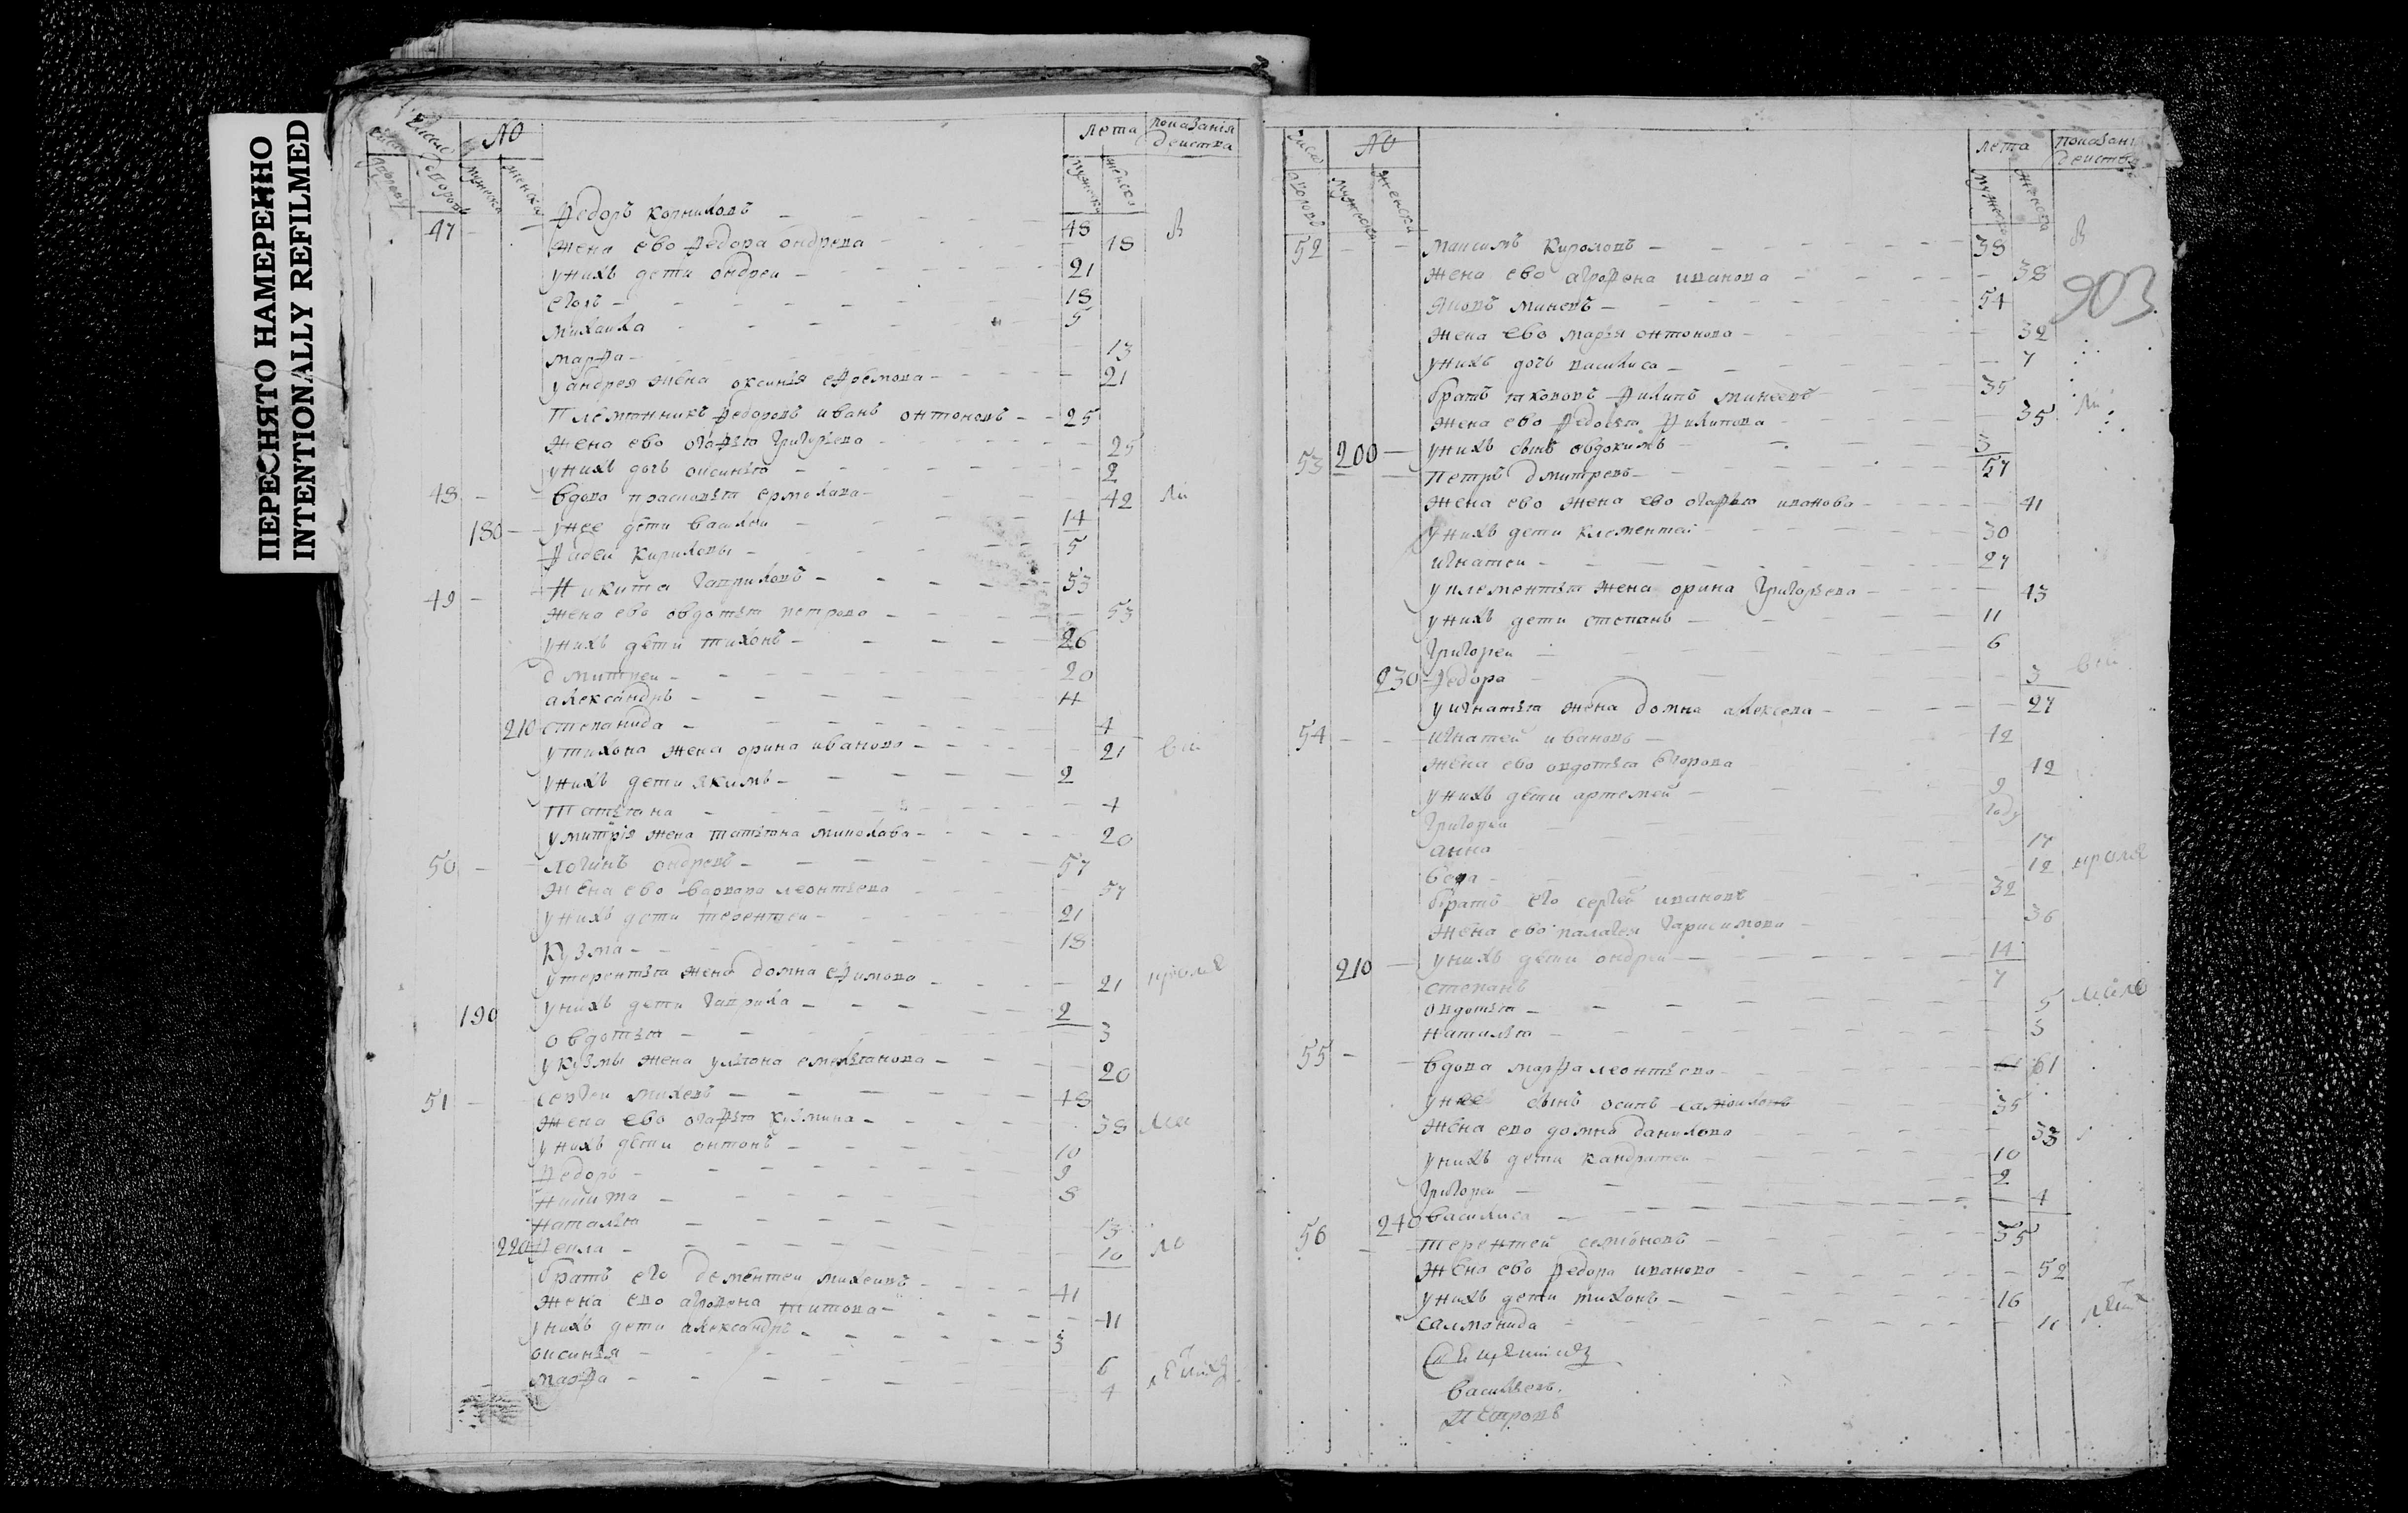 ПЕРЕСНЯТО НАМЕРЕННО
INTENTIONALLY REFILMED
№
лета
показания
деиства
мужеска
женска
47 Федоръ корниловъ 48
жена ево Федора ондрева 18
унихъ дети ондреи 21
егоръ 18
михаила 5
марфа 13
у андрея жена оксинья 21
племянникъ Федоровъ иванъ онтоновъ 25
жена ево огафья григорьева 25
унихъ дочь оксинья 2
48 вдова прасковья ермолава 42
180 унее дети василеи 14
кириловы 5
49 Никита гавриловъ 53
жена ево овдотья петрова 53
унихъ дети тихонъ 26
дмитреи 20
александръ 4
210 степанида 4
утихона жена орина иванова 21
унихъ дети якимъ 2
татьяна 4
умитрия жена татьяна 20
50 логинъ ондревъ 57
жена ево варвара леонтьева 57
унихъ дети терентеи 21
кузма 18
утерентья жена домна ефимова 21
190 унихъ дети гаврила 2
овдотья 3
укузмы жена ульяна емельянова 20
51 сергеи михевъ 48
жена ево огафья кузмина 38
унихъ дети онтонъ 10
Федоръ 9
никита 8
наталья 13
220 Фекла 10
братъ его дементеи михеивъ 41
жена ево агрофена титова 41
унихъ дети александръ 3
оксинья 6
марфа 4
№
лета
показани
деиства
903
52 максимъ кироловъ 38
жена ево агрофена иванова 38
яковъ миневъ 54
жена ево марья онтонова 32
унихъ дочь василиса 7
братъ яковъ Филипъ минеевъ 35
жена ево Федосья Филипова 35
200 унихъ сынъ овдокимъ 3
53 Петръ дмитревъ 57
жена ево жена ево огафья иванова 41
унихъ дети клементеи 30
игнатеи 27
уклементья жена орина григорьева 43
унихъ дети степанъ 11
григореи 6
230 Федора 3
уигнатья жена домна алексева 27
54 игнатеи ивановъ 42
жена ево овдотья егорова 42
унихъ дети артемеи 9
григореи году
анна 17
вера 12
братъ его сергеи ивановъ 32
жена ево палагея гарисимова 36
210 унихъ дети ондреи 14
степанъ 7
овдотья 5
наталья 3
55 вдова марфа леонтьева 61
унее сынъ осипъ 35
жена ево домна данилова 33
унихъ дети кандратеи 10
григореи 2
240 василиса 4
56 терентеи семioновъ 55
жена ево Федора иванова 52
унихъ дети тихонъ 16
саломонида 11
васильевъ
петровъ